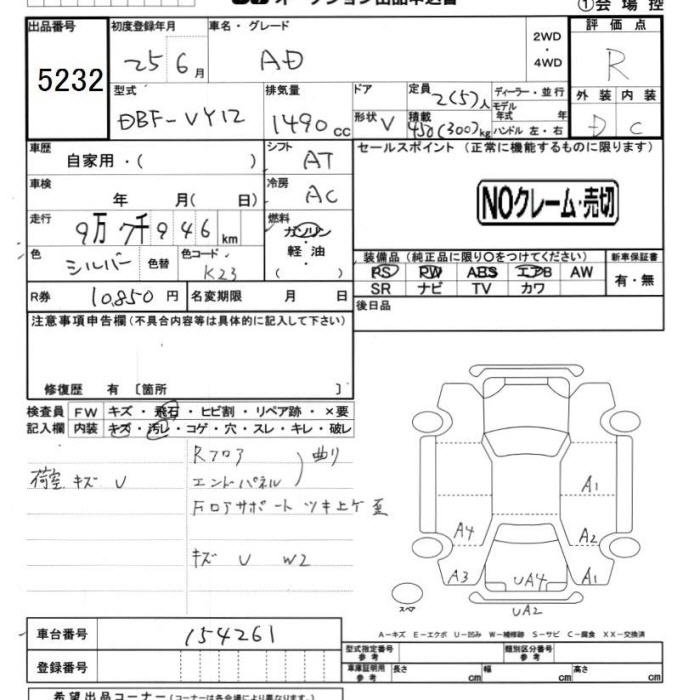 オークション出品申込書
①会場控
出品番号
5232
初度登録年月
25 6月
車名・グレード
AD
2WD
・
4WD
評価点
R
型式
DBF-VY12
排気量
1490cc
ドア
形状 V
定員 2(5)人
積載 450(300)kg
ディーラー・並行
モデル年式 年
ハンドル 左・右
外装 内装
D C
車歴
自家用・( )
シフト
AT
セールスポイント (正常に機能するものに限ります)
NOクレーム・売切
車検
年 月( 日)
冷房
AC
走行
9万 7千 9 4 6 km
燃料
ガソリン
軽油
( )
色
シルバー
色替
色コード
K23
装備品 (純正品に限り○をつけてください)
PS PW ABS エアB AW
SR ナビ TV カワ
新車保証書
有・無
R券 10,850 円
名変期限 月 日
後日品
注意事項申告欄 (不具合内容等は具体的に記入して下さい)
修復歴 有 〔箇所 〕
検査員記入欄
FW キズ・飛石・ヒビ割・リペア跡・×要
内装 キズ・汚レ・コゲ・穴・スレ・キレ・破レ
Rフロア
荷室 キズ U
エンドパネル ) 曲り
Fロアサポート ツキ上ゲ 歪
キズ U W2
A1
A4 A2
A3 UA4 A1
UA2
スペア
A-キズ E-エクボ U-凹み W-補修跡 S-サビ C-腐食 XX-交換済
車台番号
154261
型式指定番号参考
類別区分番号参考
登録番号
車庫証明用参考 長さ cm 幅 cm 高さ cm
希望出品コーナー (コーナーは各会場により異なります)